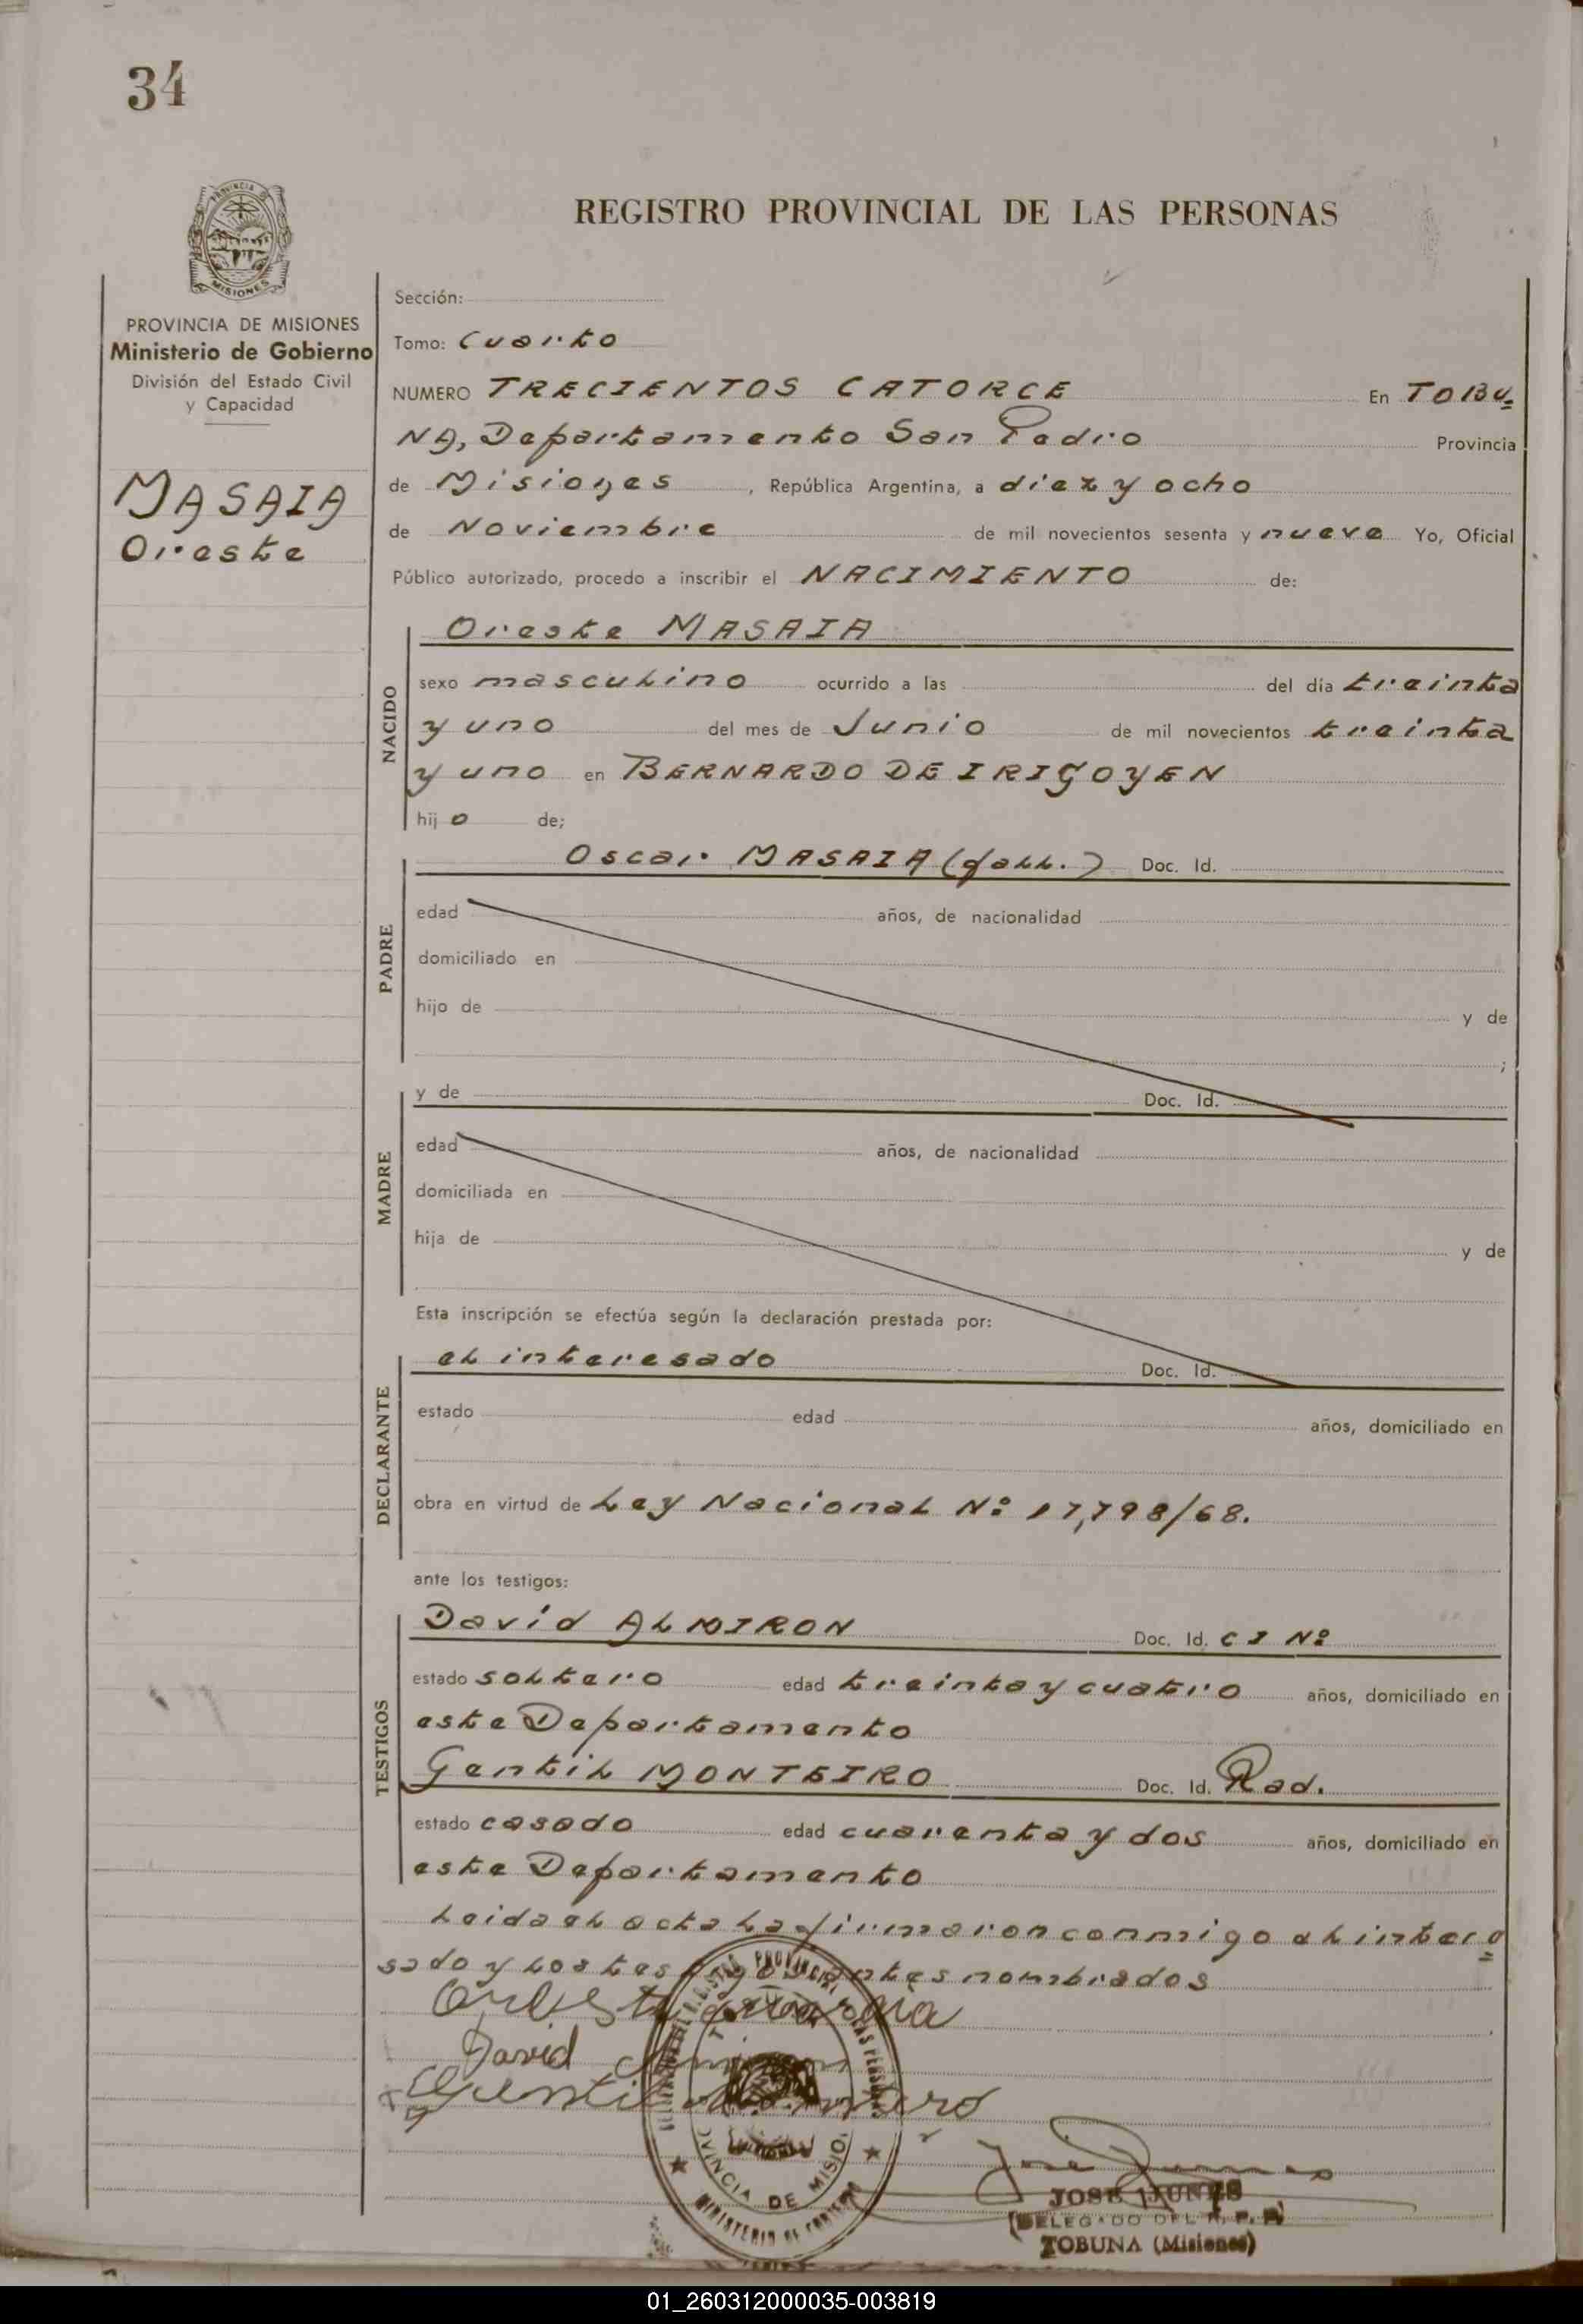 34
REGISTRO PROVINCIAL DE LAS PERSONAS
PROVINCIA DE MISIONES
Ministerio de Gobierno
División del Estado Civil
y Capacidad
MASAIA
Oreste
Sección:
Tomo: Cuarto
NUMERO TRECIENTOS CATORCE En TOBU
NA, Departamento San Pedro Provincia
de Misiones, República Argentina, a diez y ocho
de Noviembre de mil novecientos sesenta y nueve Yo, Oficial
Público autorizado, procedo a inscribir el NACIMIENTO de:
NACIDO
Oreste MASAIA
sexo masculino ocurrido a las del día treinta
y uno del mes de Junio de mil novecientos treinta
y uno en BERNARDO DE IRIGOYEN
hijo de;
PADRE
Oscar MASAIA (fall.) Doc. Id.
edad años, de nacionalidad
domiciliado en
hijo de y de
;
MADRE
y de Doc. Id.
edad años, de nacionalidad
domiciliada en
hija de y de
Esta inscripción se efectúa según la declaración prestada por:
DECLARANTE
el interesado Doc. Id.
estado edad años, domiciliado en
obra en virtud de Ley Nacional Nº 17,798/68.
ante los testigos:
TESTIGOS
David ALMIRON Doc. Id. C I Nº
estado soltero edad treinta y cuatro años, domiciliado en
este Departamento
Gentil MONTEIRO Doc. Id. Rad.
estado casado edad cuarenta y dos años, domiciliado en
este Departamento
Leida el acta la firmaron conmigo el intere
sado y los testigos antes nombrados
David
JOSE NUNES
DELEGADO DEL R. P. P.
TOBUNA (Misiones)
PROVINCIA DE MISIONES
MINISTERIO DE GOBIERNO
01_260312000035-003819